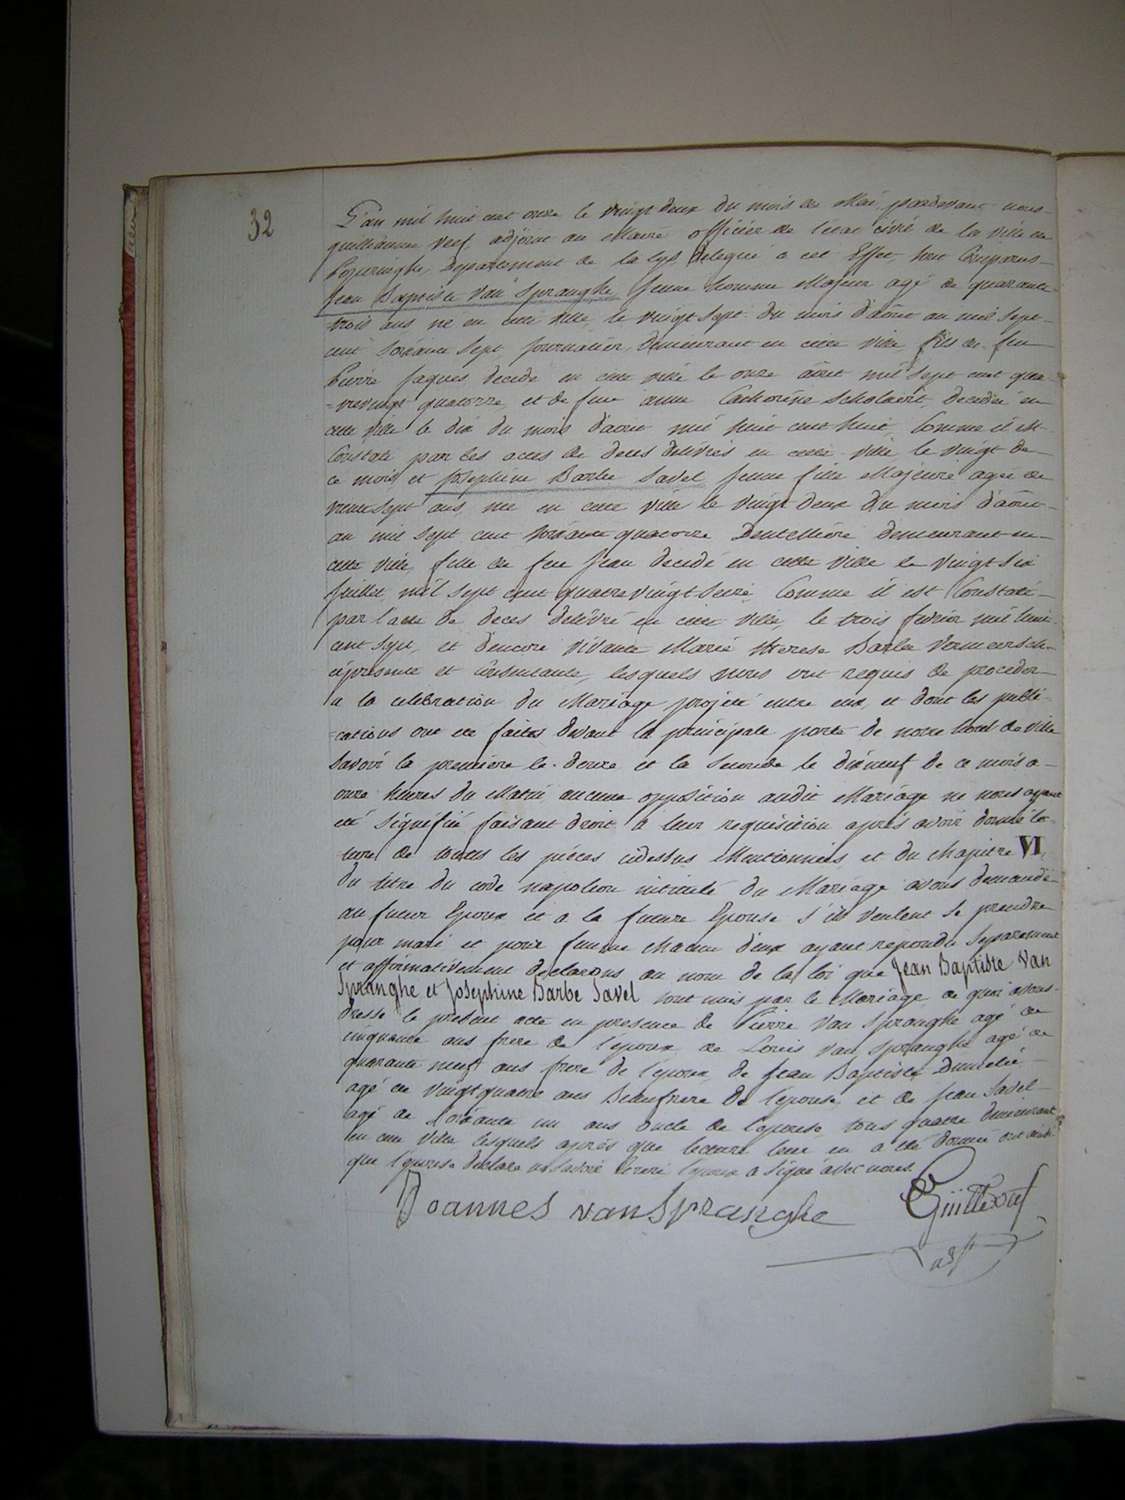 32
L'an mil huit cent onze le vingt deux du mois de Mai, pardevant nous
guilliaume Verf adjoint au Maire officier de l'etat civil de la ville de
Departement de la Lys delegué a cet Effet, sont Comparus
Jean Baptiste Van Spranghe Jeune homme Majeur agé de quarante
trois ans né en cette ville le vingt sept du mois d'août an mil sept
cent soixante sept journalier, demeurant en cette ville fils de feu
Pierre Jaques decedé en cette ville le onze août mil sept cent qua-
=trevingt quatorze et de feue anne Catherine Scholaert decedée en
cette ville le dix du mois d'aout mil huit cent huit Comme il est
Constaté par les actes de deces delivrés en cette ville le vingt de
ce mois et Josephine Barbe Savel Jeune fille Majeure agée de
trente sept ans, née en cette ville le vingt deux du mois d'août
an mil sept cent soixante quatorze Dentelliére demeurant en
cette ville fille de feu Jean decedé en cette ville le vingt six
Juillet mil sept cent quatrevingt seize Comme il est Constaté
par l'acte de deces delivré en cette ville le trois fevrier mil huit
cent sept, et d'encore vivante Marie therese Barbe Vermeersch
cipresente et consentante, lesquels nous ont requis de proceder
a la celebration du Mariage projeté entre eux, et dont les publi-
=cations ont été faites devant la principale porte de notre hotel de ville
Savoir la premiere le douze et la seconde le dixneuf de ce mois a
onze heures du Matin aucune opposition audit Mariage ne nous ayant
eté signifié faisant droit a leur requisition aprés avoir donné lec-
ture de toutes les piéces cidessus Mentionnées et du Chapitre VI
du titre du code napoleon intitulé du Mariage avons demandé
au futur Epoux et a la future Epouse s'ils veulent se prendre
pour mari et pour femme chacun d'eux ayant repondu separement
et affirmativement declarons au nom de la loi que Jean Baptiste Van
Spranghe et Josephine Barbe Savel sont unis par le Mariage de quoi avons
dressé le present acte en presence de Pierre Van Spranghe agé de
cinquante ans frere de l'époux de Louis Van Spranghe agé de
quarante neuf ans frere de l'époux, de Jean Baptiste
agé de vingtquatre ans Beaufrere de l'épouse et de Jean Savel
agé de soixante un ans oncle de l'épouse tous quatre demeurant
en cette ville lesquels aprés que lecture leur en a été donné ont
que l'épouse declaré ne savoir ecrire l'époux a signé avec nous
Joannes van Spranghe
Guill Verf
adj